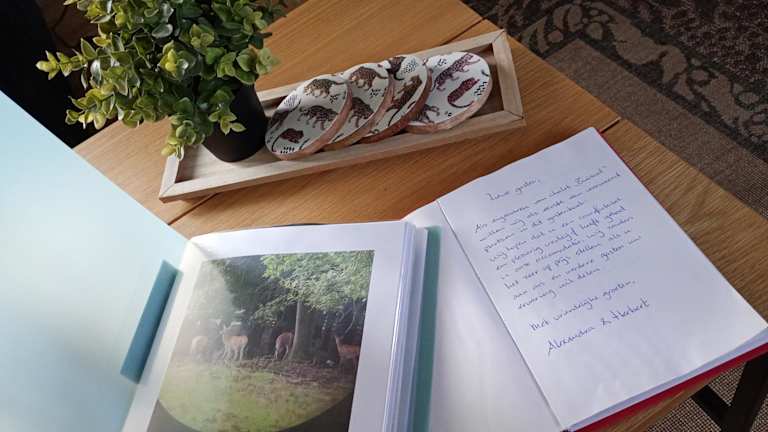 Lieve gasten,
Als eigenaren van chalet
willen wij als eerste een voorwoord
plaatsen in dit gastenboek.
Wij hopen dat u een comfortabel
en plezierig verblijf heeft gehad
in onze accomodatie. Wij zouden
het zeer op prijs stellen als u
aan ons en verdere gasten uw
ervaring wil delen.
Met vriendelijke groeten,
Alexandra & Herbert